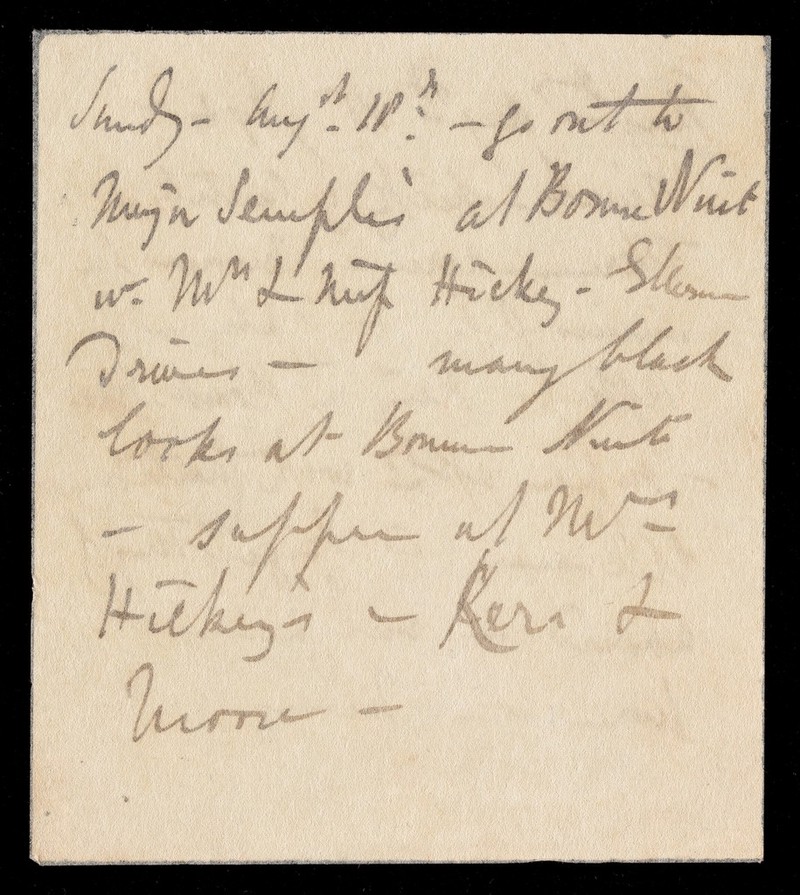 Sundy - Augst. 18th. - go out to
Major Semple's at Bonne Nuit
w. Mrs & Miss Hickey -
Drives - many black
looks at Bonne Nuit
- supper at Mrs
Hickey's - Kers &
Moore -